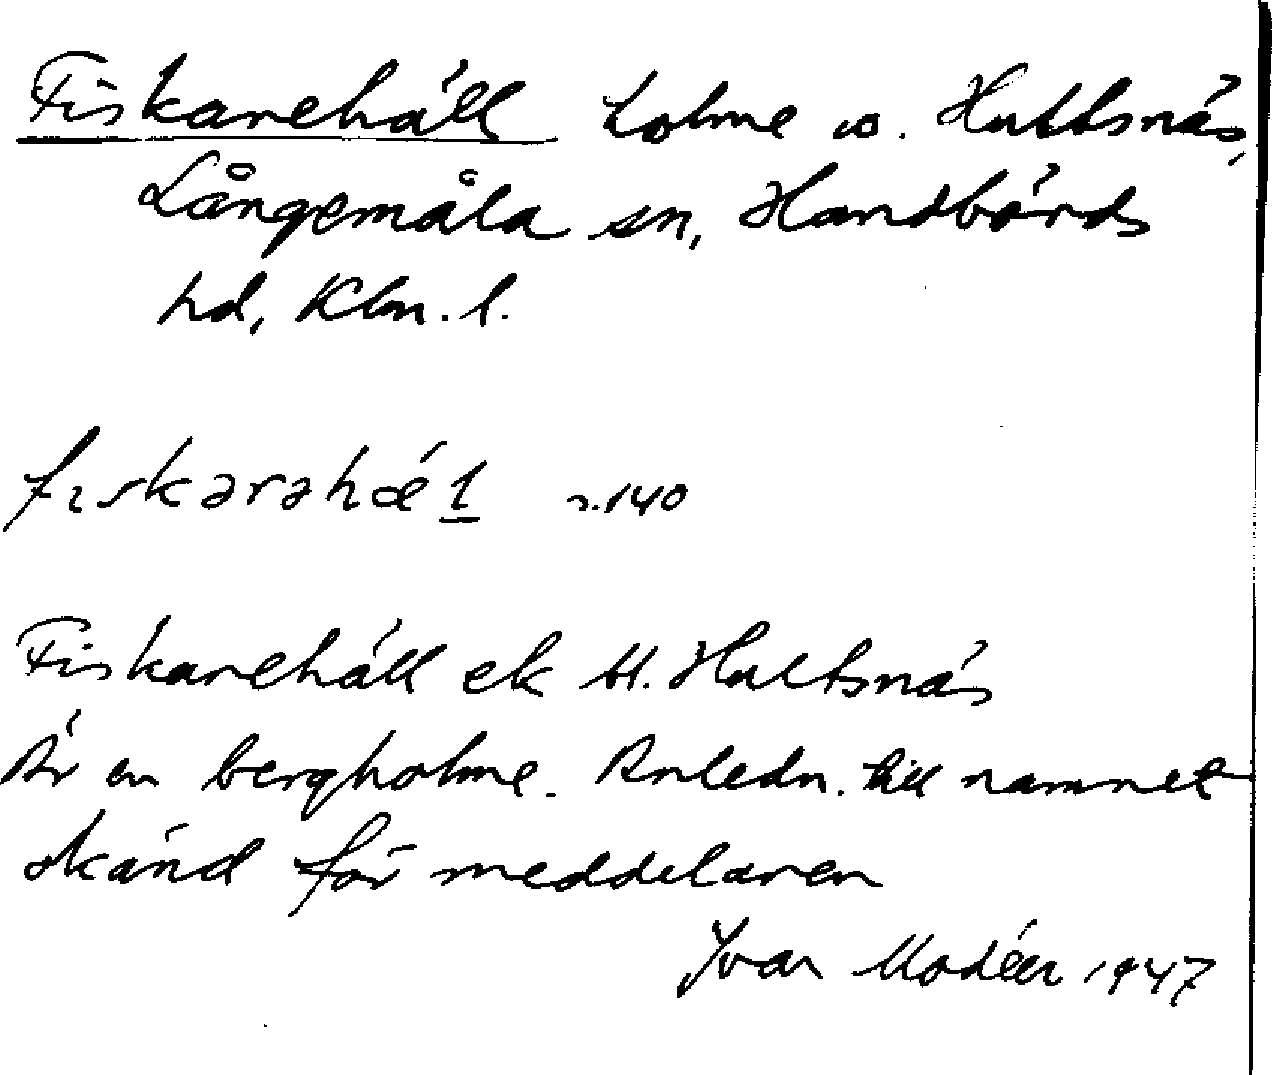 Fiskarehäll holme w. Hultsnäs,
Långemåla sn, Handbörds
hd, Klm. l.
fıskarahæ´l s. 140
Fiskarehäll ek bl. Hultsnäs
Är en bergholme. Anledn. till namnet
okänd för meddelaren
Ivar Modéer 1947